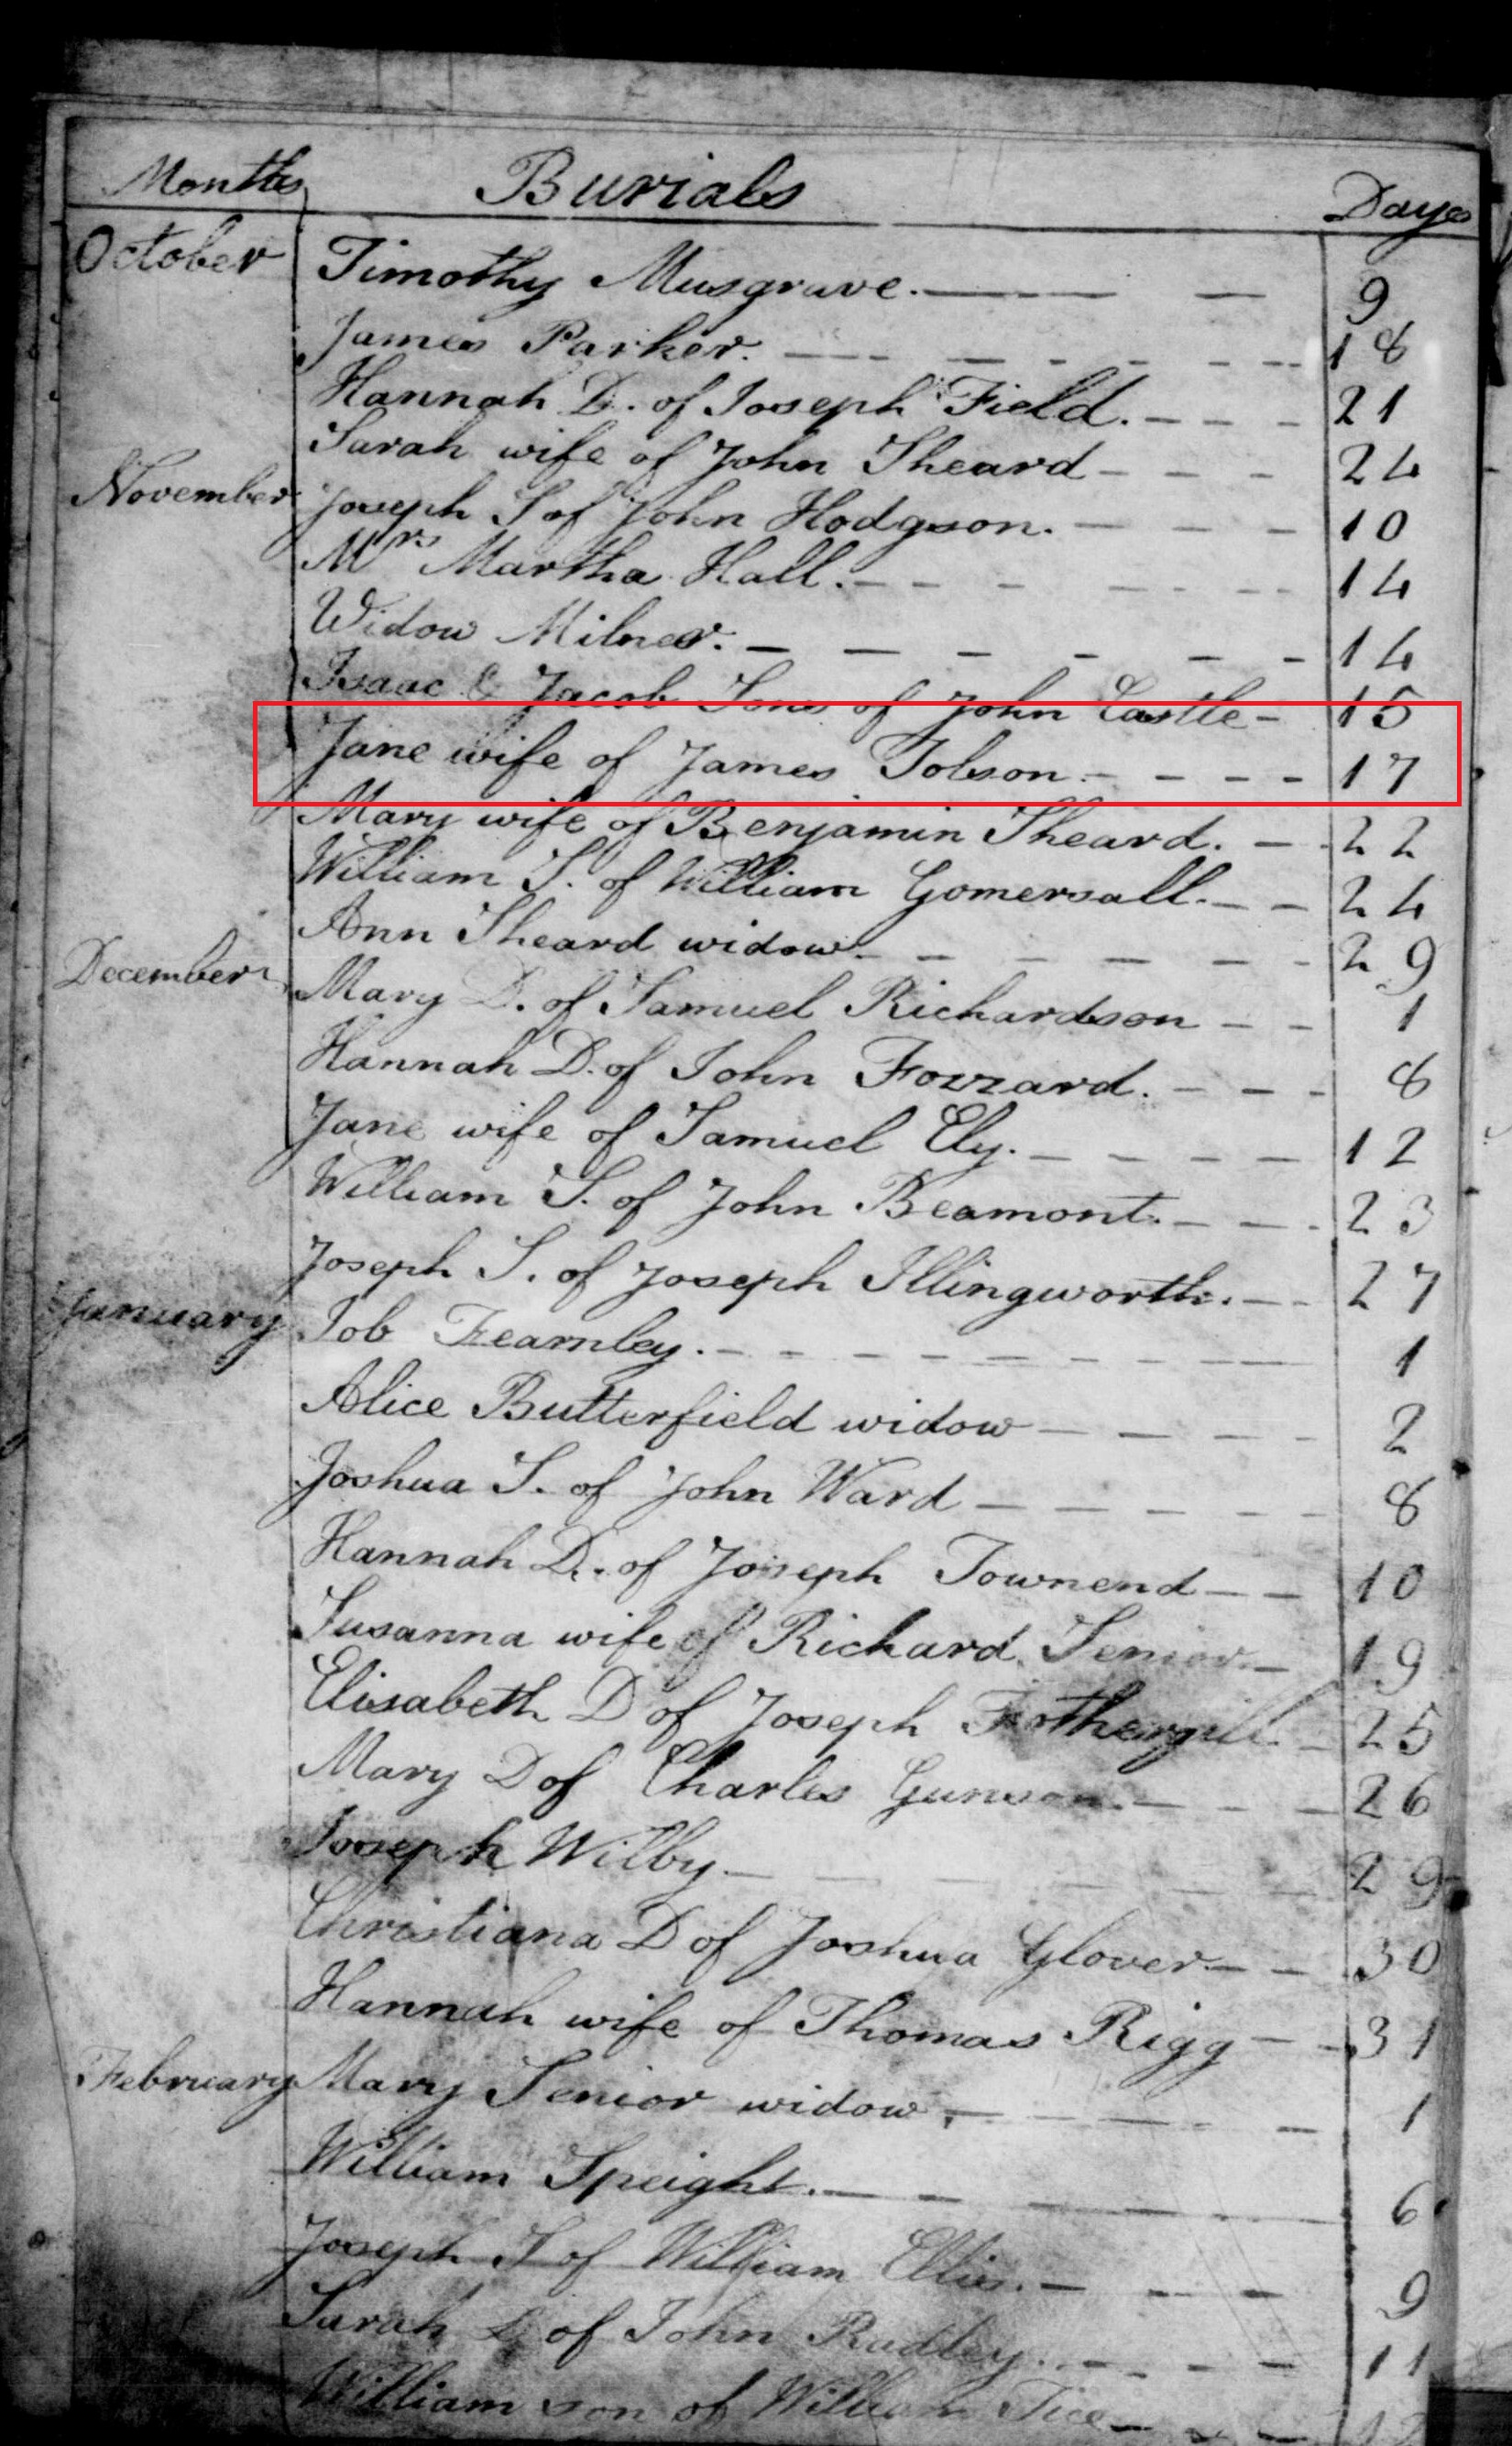 Months Burials Days
October Timothy Musgrave. 9
James Parker. 18
Hannah D. of Joseph Field. 21
Sarah wife of John Sheard 24
November Joseph S of John Hodgson. 10
Mrs Martha Hall. 14
Widow Milner. 14
Isaac & Jacob Sons of John Castle 15
Jane wife of James Tolson. 17
Mary wife of Benjamin Sheard. 22
William S. of William Gomersall. 24
Ann Sheard widow. 29
December Mary D. of Samuel Richardson 1
Hannah D. of John Fozzard. 8
Jane wife of Samuel Ely. 12
William S. of John Beamont. 23
Joseph S. of Joseph Illingworth. 27
January Job Fearnley. 1
Alice Butterfield widow 2
Joshua S. of John Ward 8
Hannah D. of Joseph Townend 10
Susanna wife of Richard Senior 19
Elisabeth D of Joseph Fothergill 25
Mary D of Charles Gunson. 26
Joseph Wilby. 29
Christiana D of Joshua Glover 30
Hannah wife of Thomas Rigg 31
February Mary Senior widow, 1
William Speight. 6
Joseph S of William Ellis. 9
Sarah D of John Radley. 11
William son of William Tice